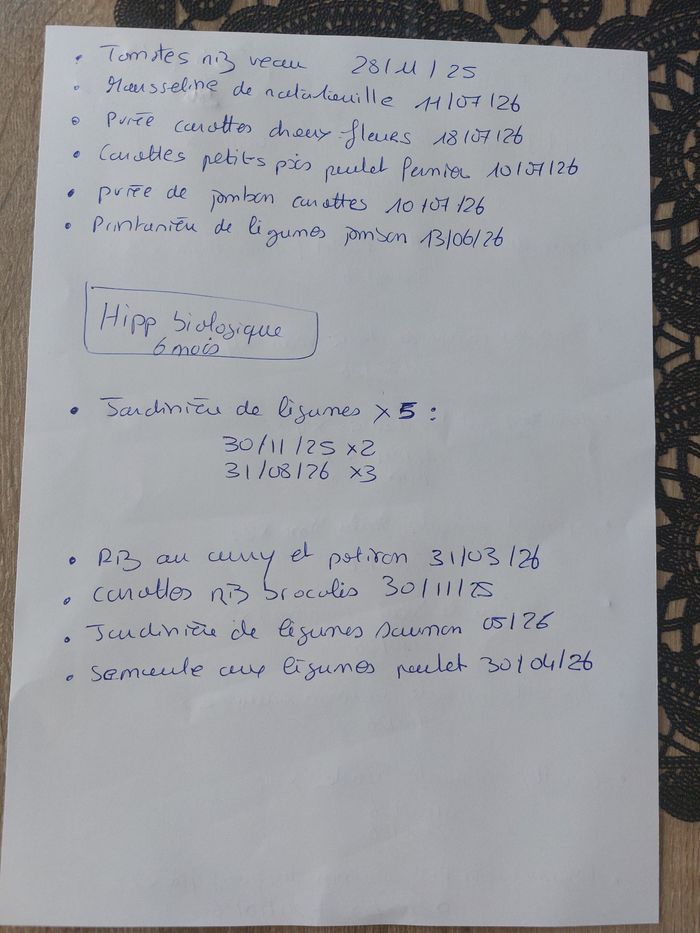 • Tomates riz veau 28/11/25
• Mousseline de ratatouille 11/07/26
• Purée carottes choux-fleurs 18/07/26
• Carottes petits pois poulet fermier 10/07/26
• purée de jambon carottes 10/07/26
• Printanière de légumes jambon 13/06/26
Hipp biologique
6 mois
• Jardinière de légumes x 5 :
30/11/25 x2
31/08/26 x3
• Riz au curry et potiron 31/03/26
• carottes riz brocolis 30/11/25
• Jardinière de légumes saumon 05/26
• semoule aux légumes poulet 30/04/26